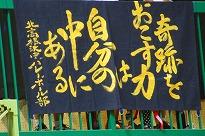 奇跡を
おこす力
は
自分の
中に
ある
北高根沢バレーボール部